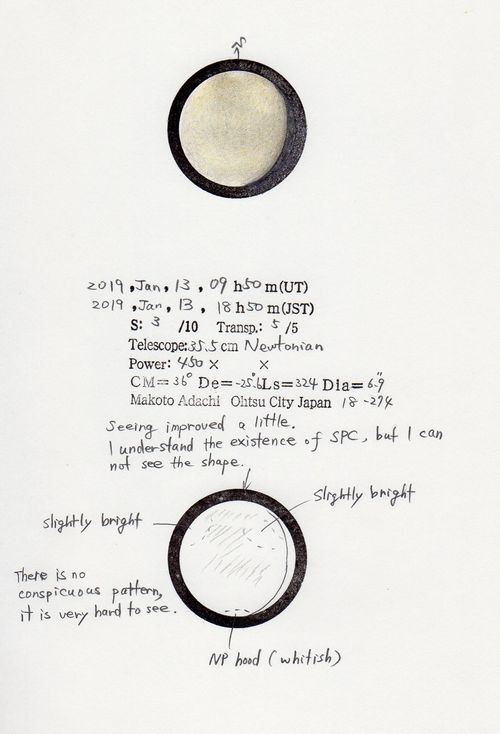 S
2019, Jan, 13, 09 h50 m(UT)
2019, Jan, 13, 18 h50 m(JST)
S: 3 /10 Transp.: 5 /5
Telescope: 35.5 cm Newtonian
Power: 450 × ×
CM= 36° De= -25.6 Ls= 324 Dia= 6.9"
Makoto Adachi Ohtsu City Japan 18-274
Seeing improved a little.
I understand the existence of SPC, but I can
not see the shape.
slightly bright
slightly bright
There is no
conspicuous pattern,
it is very hard to see.
NP hood (whitish)